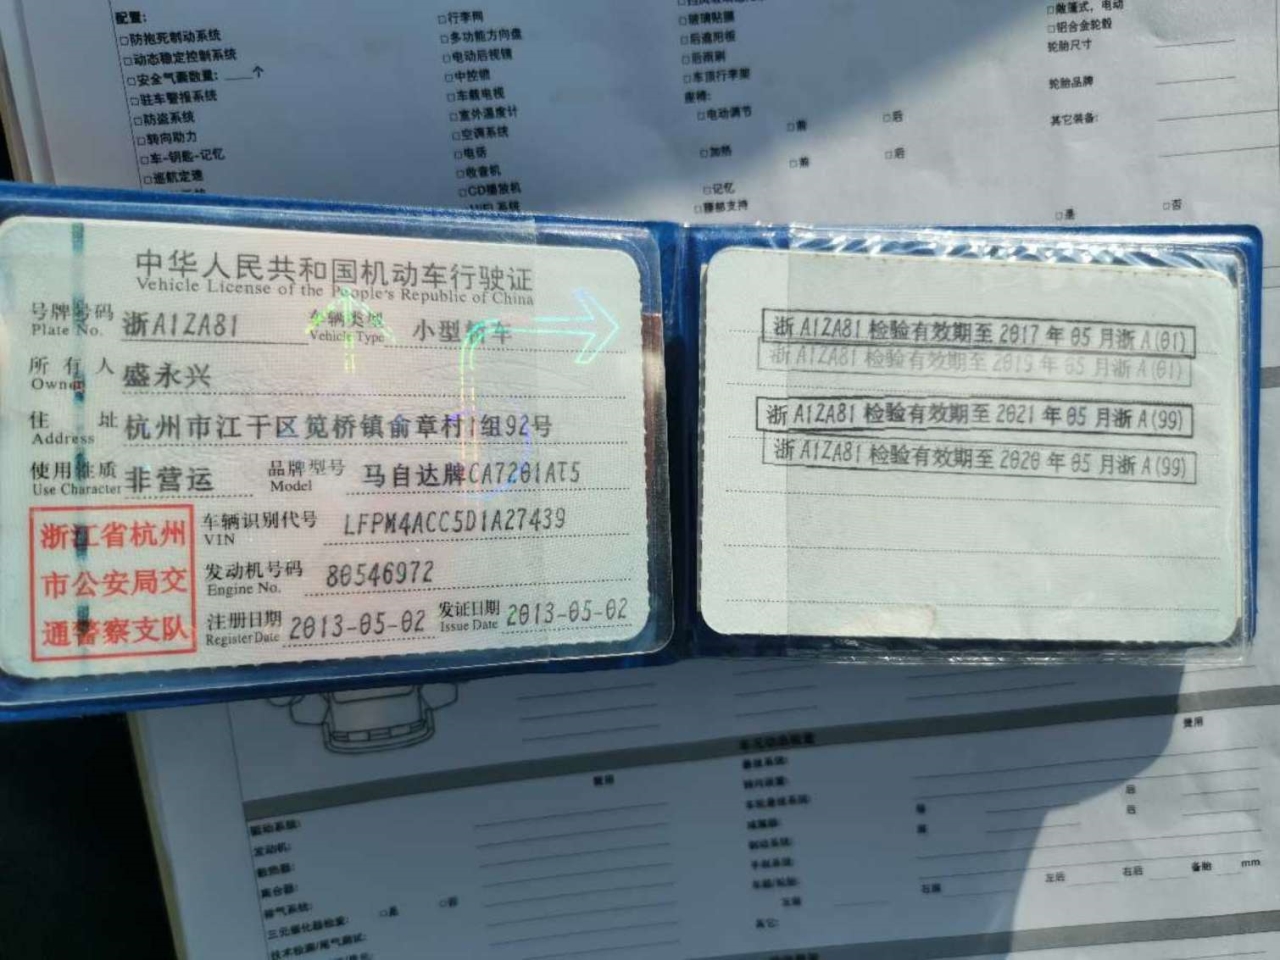 配置:
□防抱死制动系统
□动态稳定控制系统
□安全气囊数量: 个
□驻车警报系统
□防盗系统
□转向助力
□车-钥匙-记忆
□巡航定速
□行李网
□多功能方向盘
□电动后视镜
□中控锁
□车载电视
□室外温度计
□空调系统
□电话
□收音机
□CD播放机
□玻璃贴膜
□后遮阳板
□后雨刷
□车顶行李架
座椅:
□电动调节 □前 □后
□加热 □前 □后
□记忆
□腰部支持
敞篷式, 电动
□铝合金轮毂
轮胎尺寸
轮胎品牌
其它装备:
□是 □否
中华人民共和国机动车行驶证
Vehicle License of the People's Republic of China
号牌号码 浙A1ZA81 车辆类型 小型轿车
Plate No. Vehicle Type
所有人 盛永兴
Owner
住址 杭州市江干区笕桥镇俞章村1组92号
Address
使用性质 非营运 品牌型号 马自达牌CA7201AT5
Use Character Model
浙江省杭州
市公安局交
通警察支队
车辆识别代号 LFPM4ACC5D1A27439
VIN
发动机号码 80546972
Engine No.
注册日期 2013-05-02 发证日期 2013-05-02
Register Date Issue Date
浙A1ZA81检验有效期至2017年05月浙A(01)
浙A1ZA81检验有效期至2019年05月浙A(01)
浙A1ZA81检验有效期至2021年05月浙A(99)
浙A1ZA81检验有效期至2020年05月浙A(99)
费用
费用
驱动系统:
发动机:
散热器:
离合器:
排气系统: □是 □否
三元催化器检查:
转向装置:
减震器:
制动系统:
手刹系统:
后
后
左后 右后 备胎 mm
其它: